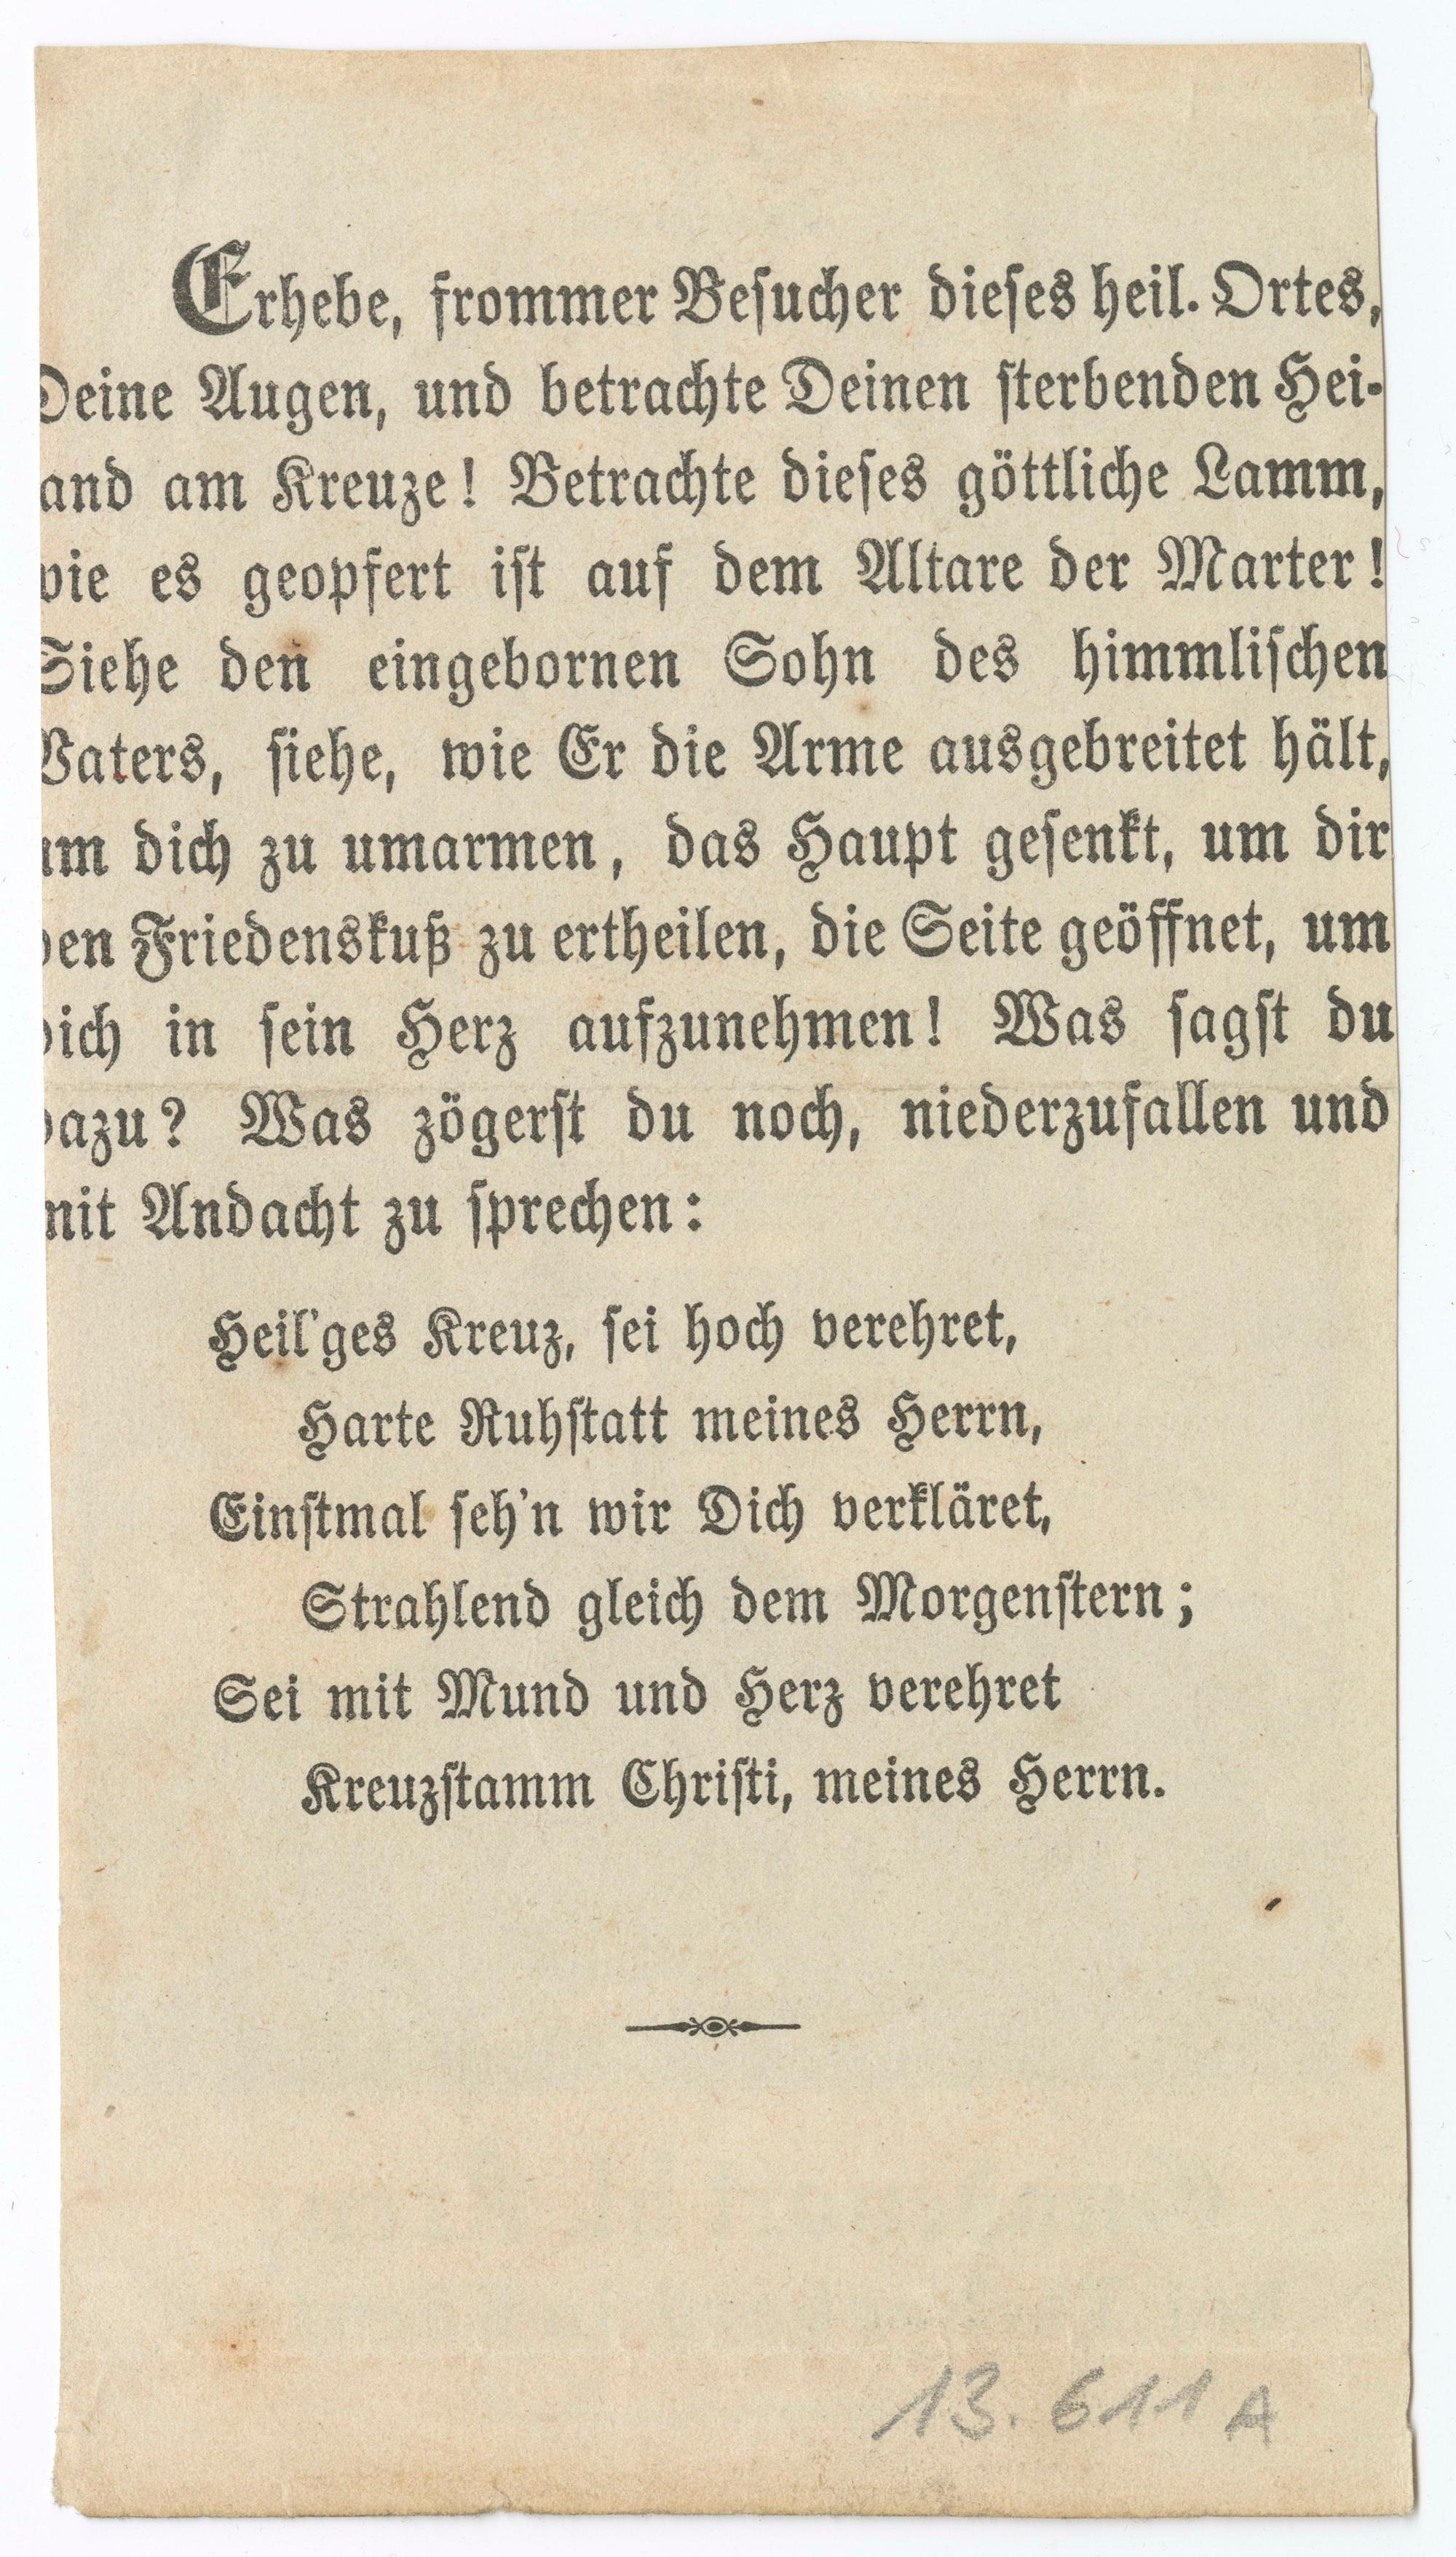 Erhebe, frommer Besucher dieses heil. Ortes,
Deine Augen, und betrachte Deinen sterbenden Hei-
and am Kreuze! Betrachte dieses göttliche Lamm,
wie es geopfert ist auf dem Altare der Marter!
Siehe den eingebornen Sohn des himmlischen
Vaters, siehe, wie Er die Arme ausgebreitet hält,
um dich zu umarmen, das Haupt gesenkt, um dir
den Friedenskuß zu ertheilen, die Seite geöffnet, um
dich in sein Herz aufzunehmen! Was sagst du
dazu? Was zögerst du noch, niederzufallen und
mit Andacht zu sprechen:
Heil'ges Kreuz, sei hoch verehret,
Harte Ruhstatt meines Herrn,
Einstmal seh'n wir Dich verkläret,
Strahlend gleich dem Morgenstern;
Sei mit Mund und Herz verehret
Kreuzstamm Christi, meines Herrn.
13.611 A